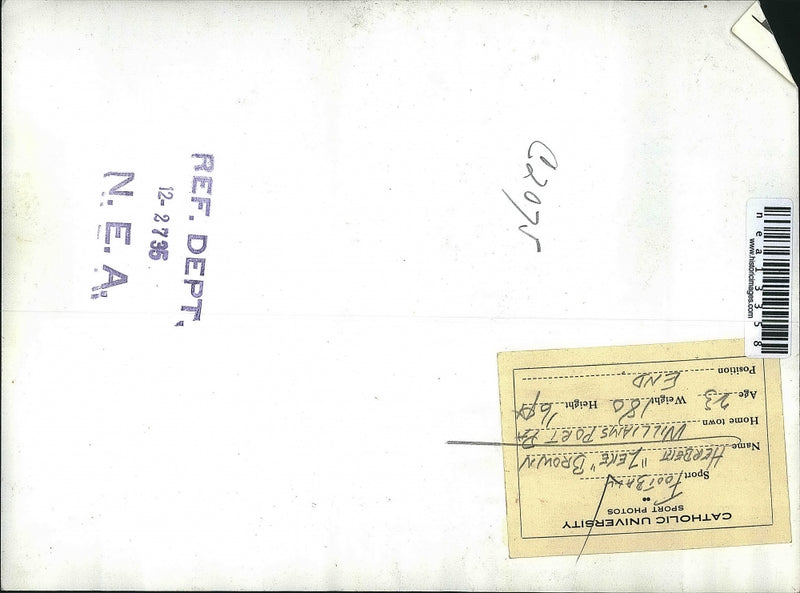 REF. DEPT.
12-2735
N. E. A.
C2075
nea13358
www.historicimages.com
CATHOLIC UNIVERSITY
SPORT PHOTOS
Sport FOOTBALL
Name HERBERT "ZEKE" BROWN
Home town WILLIAMSPORT PA
Age 23 Weight 180 Height
Position END